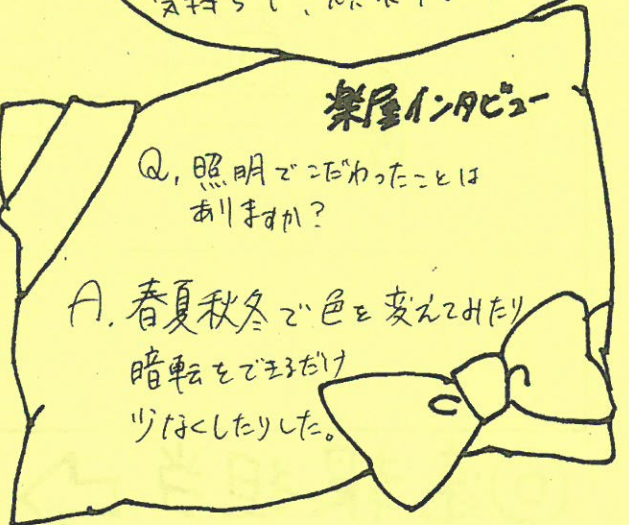 気持ちで、
楽屋インタビュー
Q. 照明でこだわったことは
ありますか?
A. 春夏秋冬で色を変えてみたり
暗転をできるだけ
少なくしたりした。